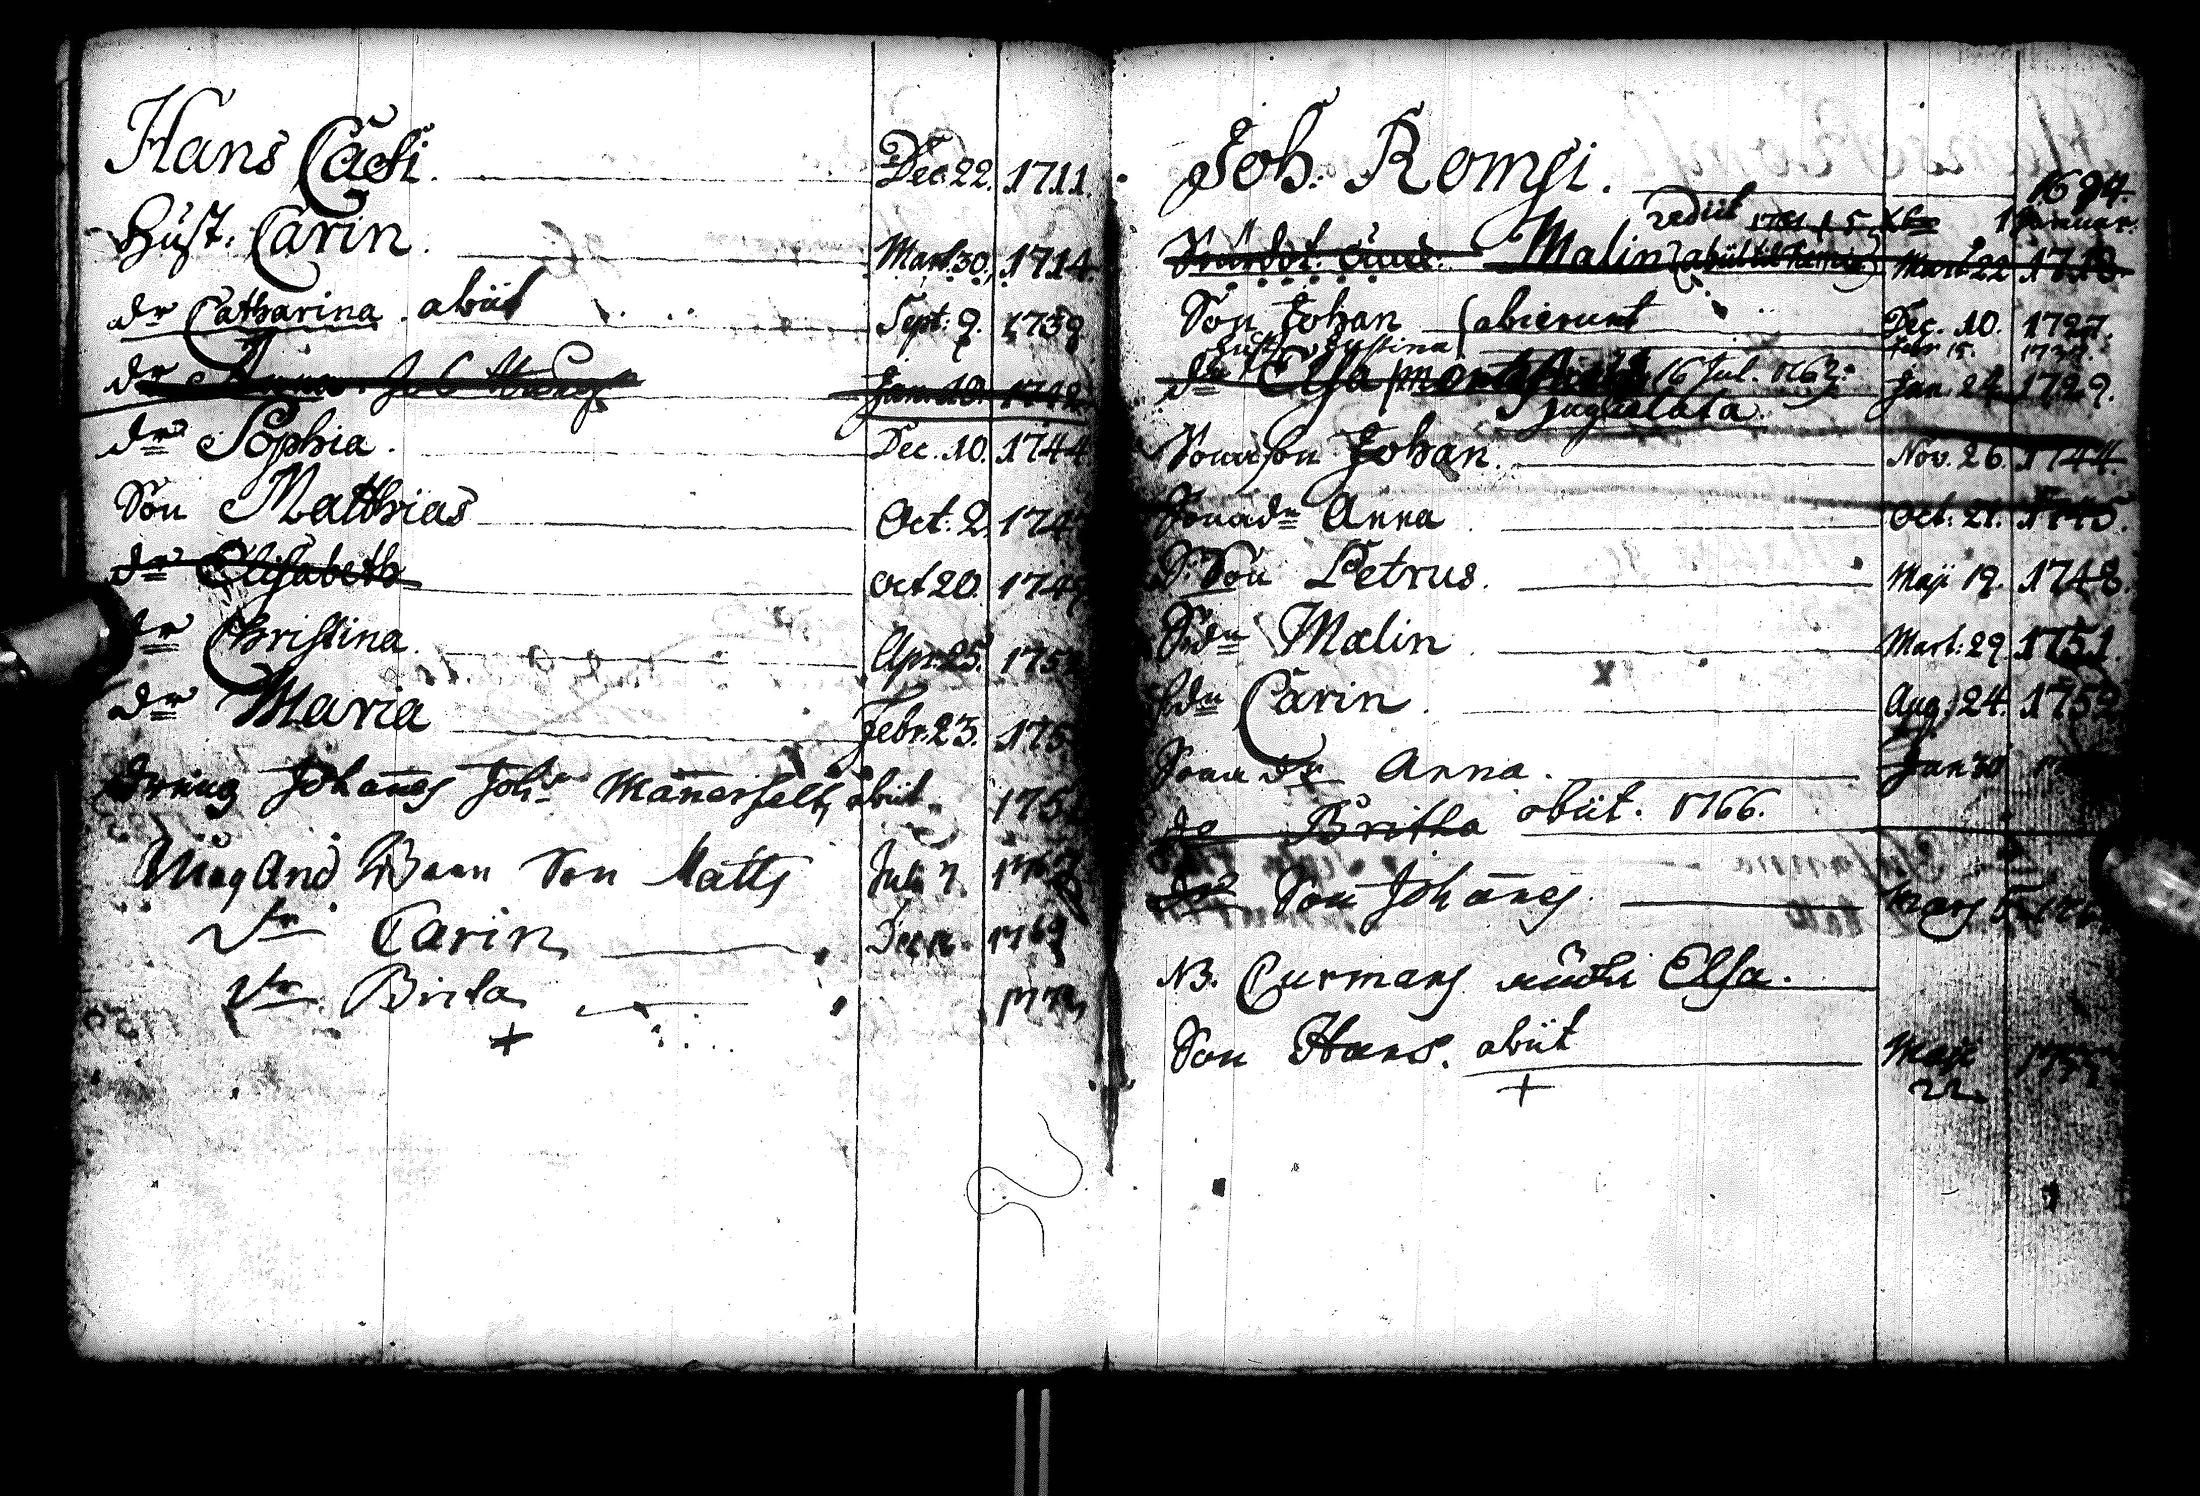 Hans Casi. Dec. 22. 1711.
Hust. Carin. Mart. 30. 1714
dr Catharina. abiit Sept: 9. 1739
dr Jan. 10. 1742
dr Sophia. Dec. 10. 1744
Son Matthias Oct: 2. 174
dr Elisabeth Oct 20. 174
dr Christina. Apr. 25. 175
dr Maria Febr. 23. 175
dreng Johañes Johs abiit. 175
And Son Matts Juli 7.
dr Carin Dec 1769
dr Birta
+
Joh. Romsi. 1694.
rediit 1761 Januar.
Malin Mart 22
Son Johan (abierunt Dec. 10. 1727.
Hust. Justina Febr. 15.
dr Elsa 16 Jul. 1762. Jan 24. 1729.
jugulata
Sonason Johan. Nov. 26. 1744.
Sonadr Anna Oct: 21. 1745.
S. Son Petrus. Maji 19. 1748.
S. dr Malin Mart: 29 1751.
S dr Carin. Aug: 24. 175
Sona dr Anna. Jan 30
dr Britha obiit. 1766.
dr Son Johañes Mars 5. 176
NB. Curmans Elsa.
Son Hans. abiit Maji 22. 175
+